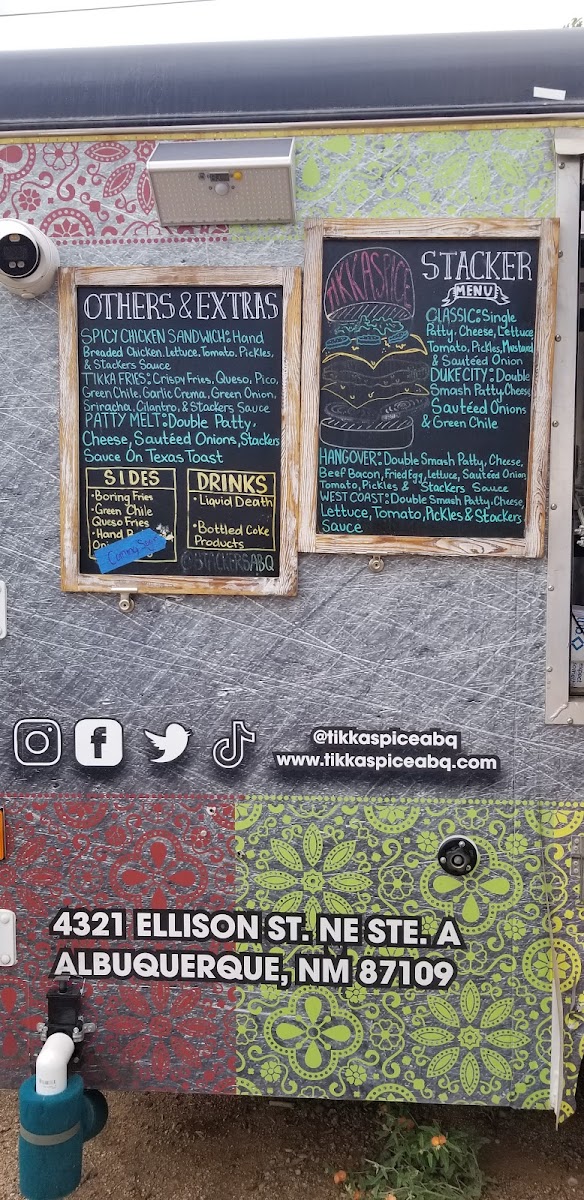 OTHERS & EXTRAS
SPICY CHICKEN SANDWICH: Hand
Breaded Chicken, Lettuce, Tomato, Pickles,
& Stackers Sauce
TIKKA FRIES: Crispy Fries, Queso, Pico,
Green Chile, Garlic Crema, Green Onion,
Sriracha, Cilantro, & Stackers Sauce
PATTY MELT: Double Patty,
Cheese, Sautéed Onions, Stackers
Sauce On Texas Toast
SIDES
• Boring Fries
• Green Chile
Queso Fries
• Hand
Coming Soon
DRINKS
• Liquid Death
• Bottled Coke
Products
@STACKERSABQ
TIKKASPICE
STACKER
MENU
CLASSIC: Single
Patty, Cheese, Lettuce
Tomato, Pickles, Mustard
& Sautéed Onion
DUKE CITY: Double
Smash Patty, Cheese,
Sautéed Onions
& Green Chile
HANGOVER: Double Smash Patty, Cheese,
Beef Bacon, Fried Egg, Lettuce, Sautéed Onion,
Tomato, Pickles & Stackers Sauce
WEST COAST: Double Smash Patty, Cheese,
Lettuce, Tomato, Pickles & Stackers
Sauce
@tikkaspiceabq
www.tikkaspiceabq.com
4321 ELLISON ST. NE STE. A
ALBUQUERQUE, NM 87109